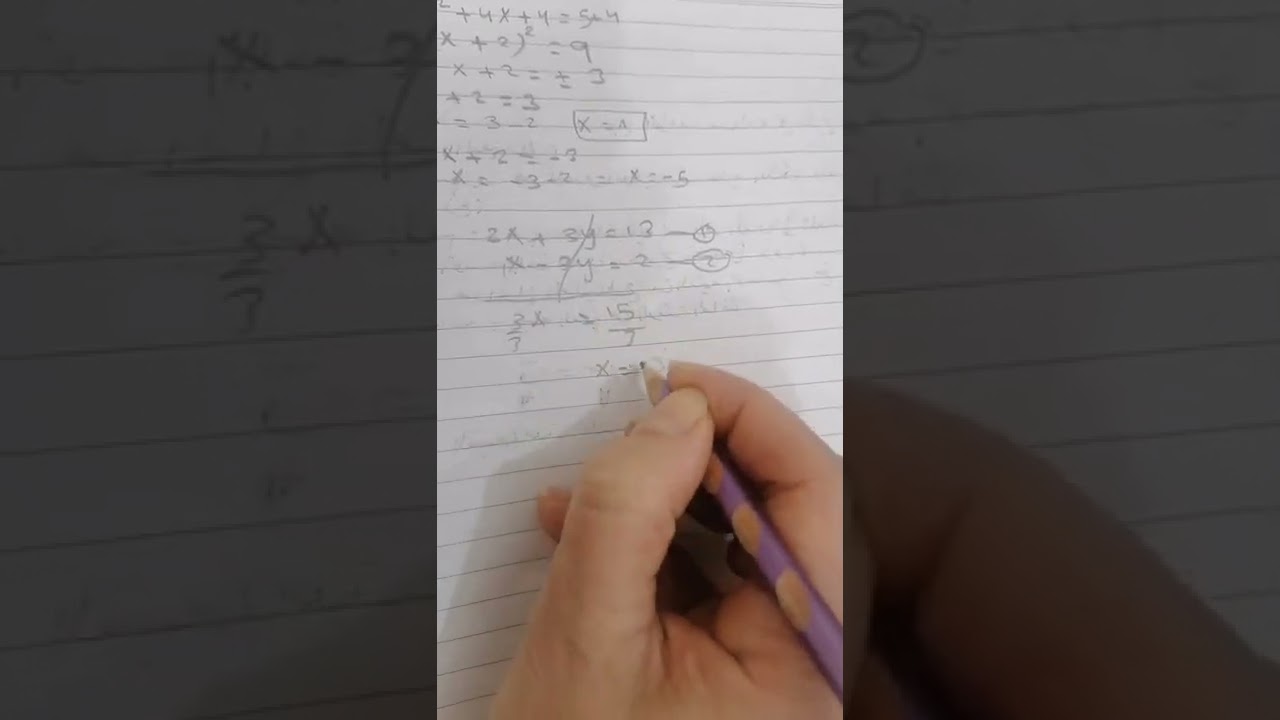 ² + 4x + 4 = 5+4
x + 2)² = 9
x + 2 = ± 3
+ 2 = 3
= 3 - 2 x = 1
x + 2 = -3
x = -3-2 = x = -5
2x + 3y = 13 — 1
x - 3y = 2 — 2
3/3 x = 15/3
x =